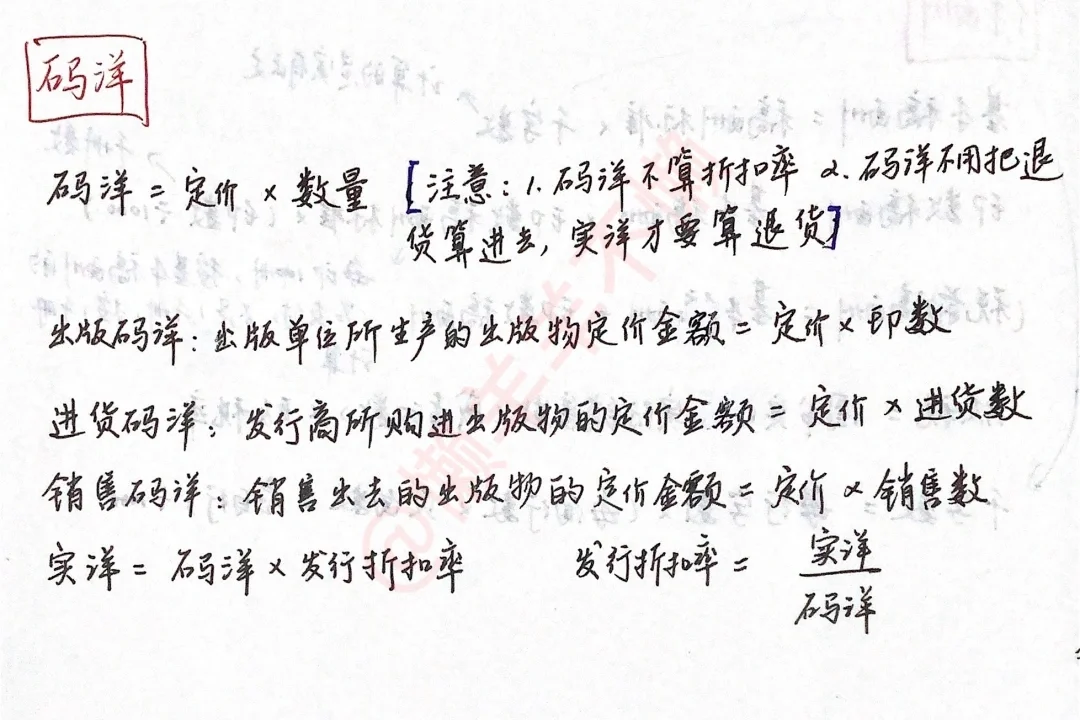 码洋
码洋 = 定价 × 数量 [注意：1. 码洋不算折扣率 2. 码洋不用把退
货算进去，实洋才要算退货]
出版码洋：出版单位所生产的出版物定价金额 = 定价 × 印数
进货码洋：发行商所购进出版物的定价金额 = 定价 × 进货数
销售码洋：销售出去的出版物的定价金额 = 定价 × 销售数
实洋 = 码洋 × 发行折扣率 发行折扣率 = 实洋
码洋